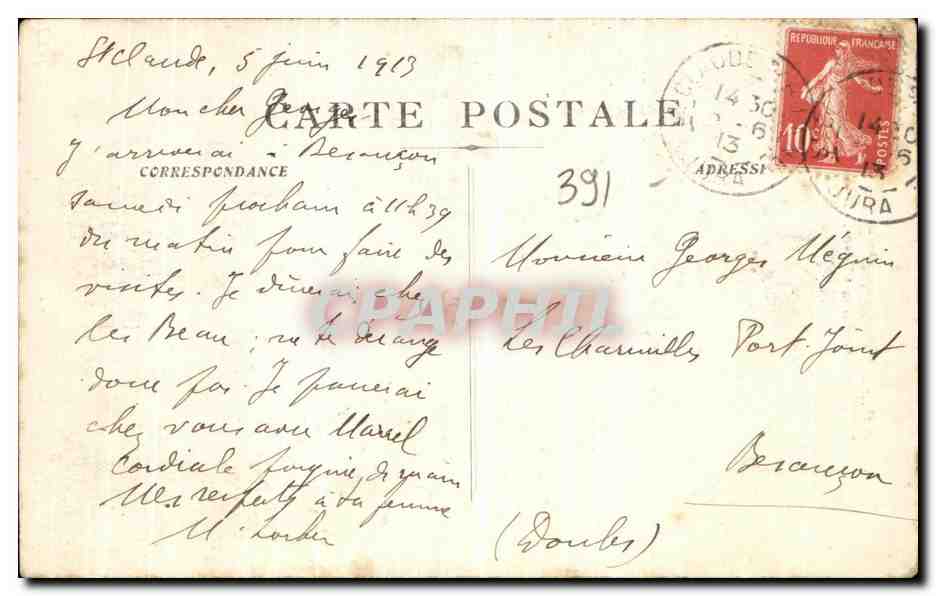 St Claude, 5 juin 1913
Mon cher Georges
CARTE POSTALE
J'arriverai à Besançon
CORRESPONDANCE
samedi prochain à 11h39
du matin pour faire des
visites. Je dînerai chez
les Beau ; ne te dérange
donc pas. Je passerai
chez vous avec Marcel
Cordiale poignée de main
Mes respects à ta femme
391
ADRESSE
Monsieur Georges Méguin
Les Charmilles Port-Joint
Besançon
(Doubs)
REPUBLIQUE FRANÇAISE
10c
POSTES
CLAUDE
14 30
6
13
JURA
14 30
6
13
JURA
CPAPHIL